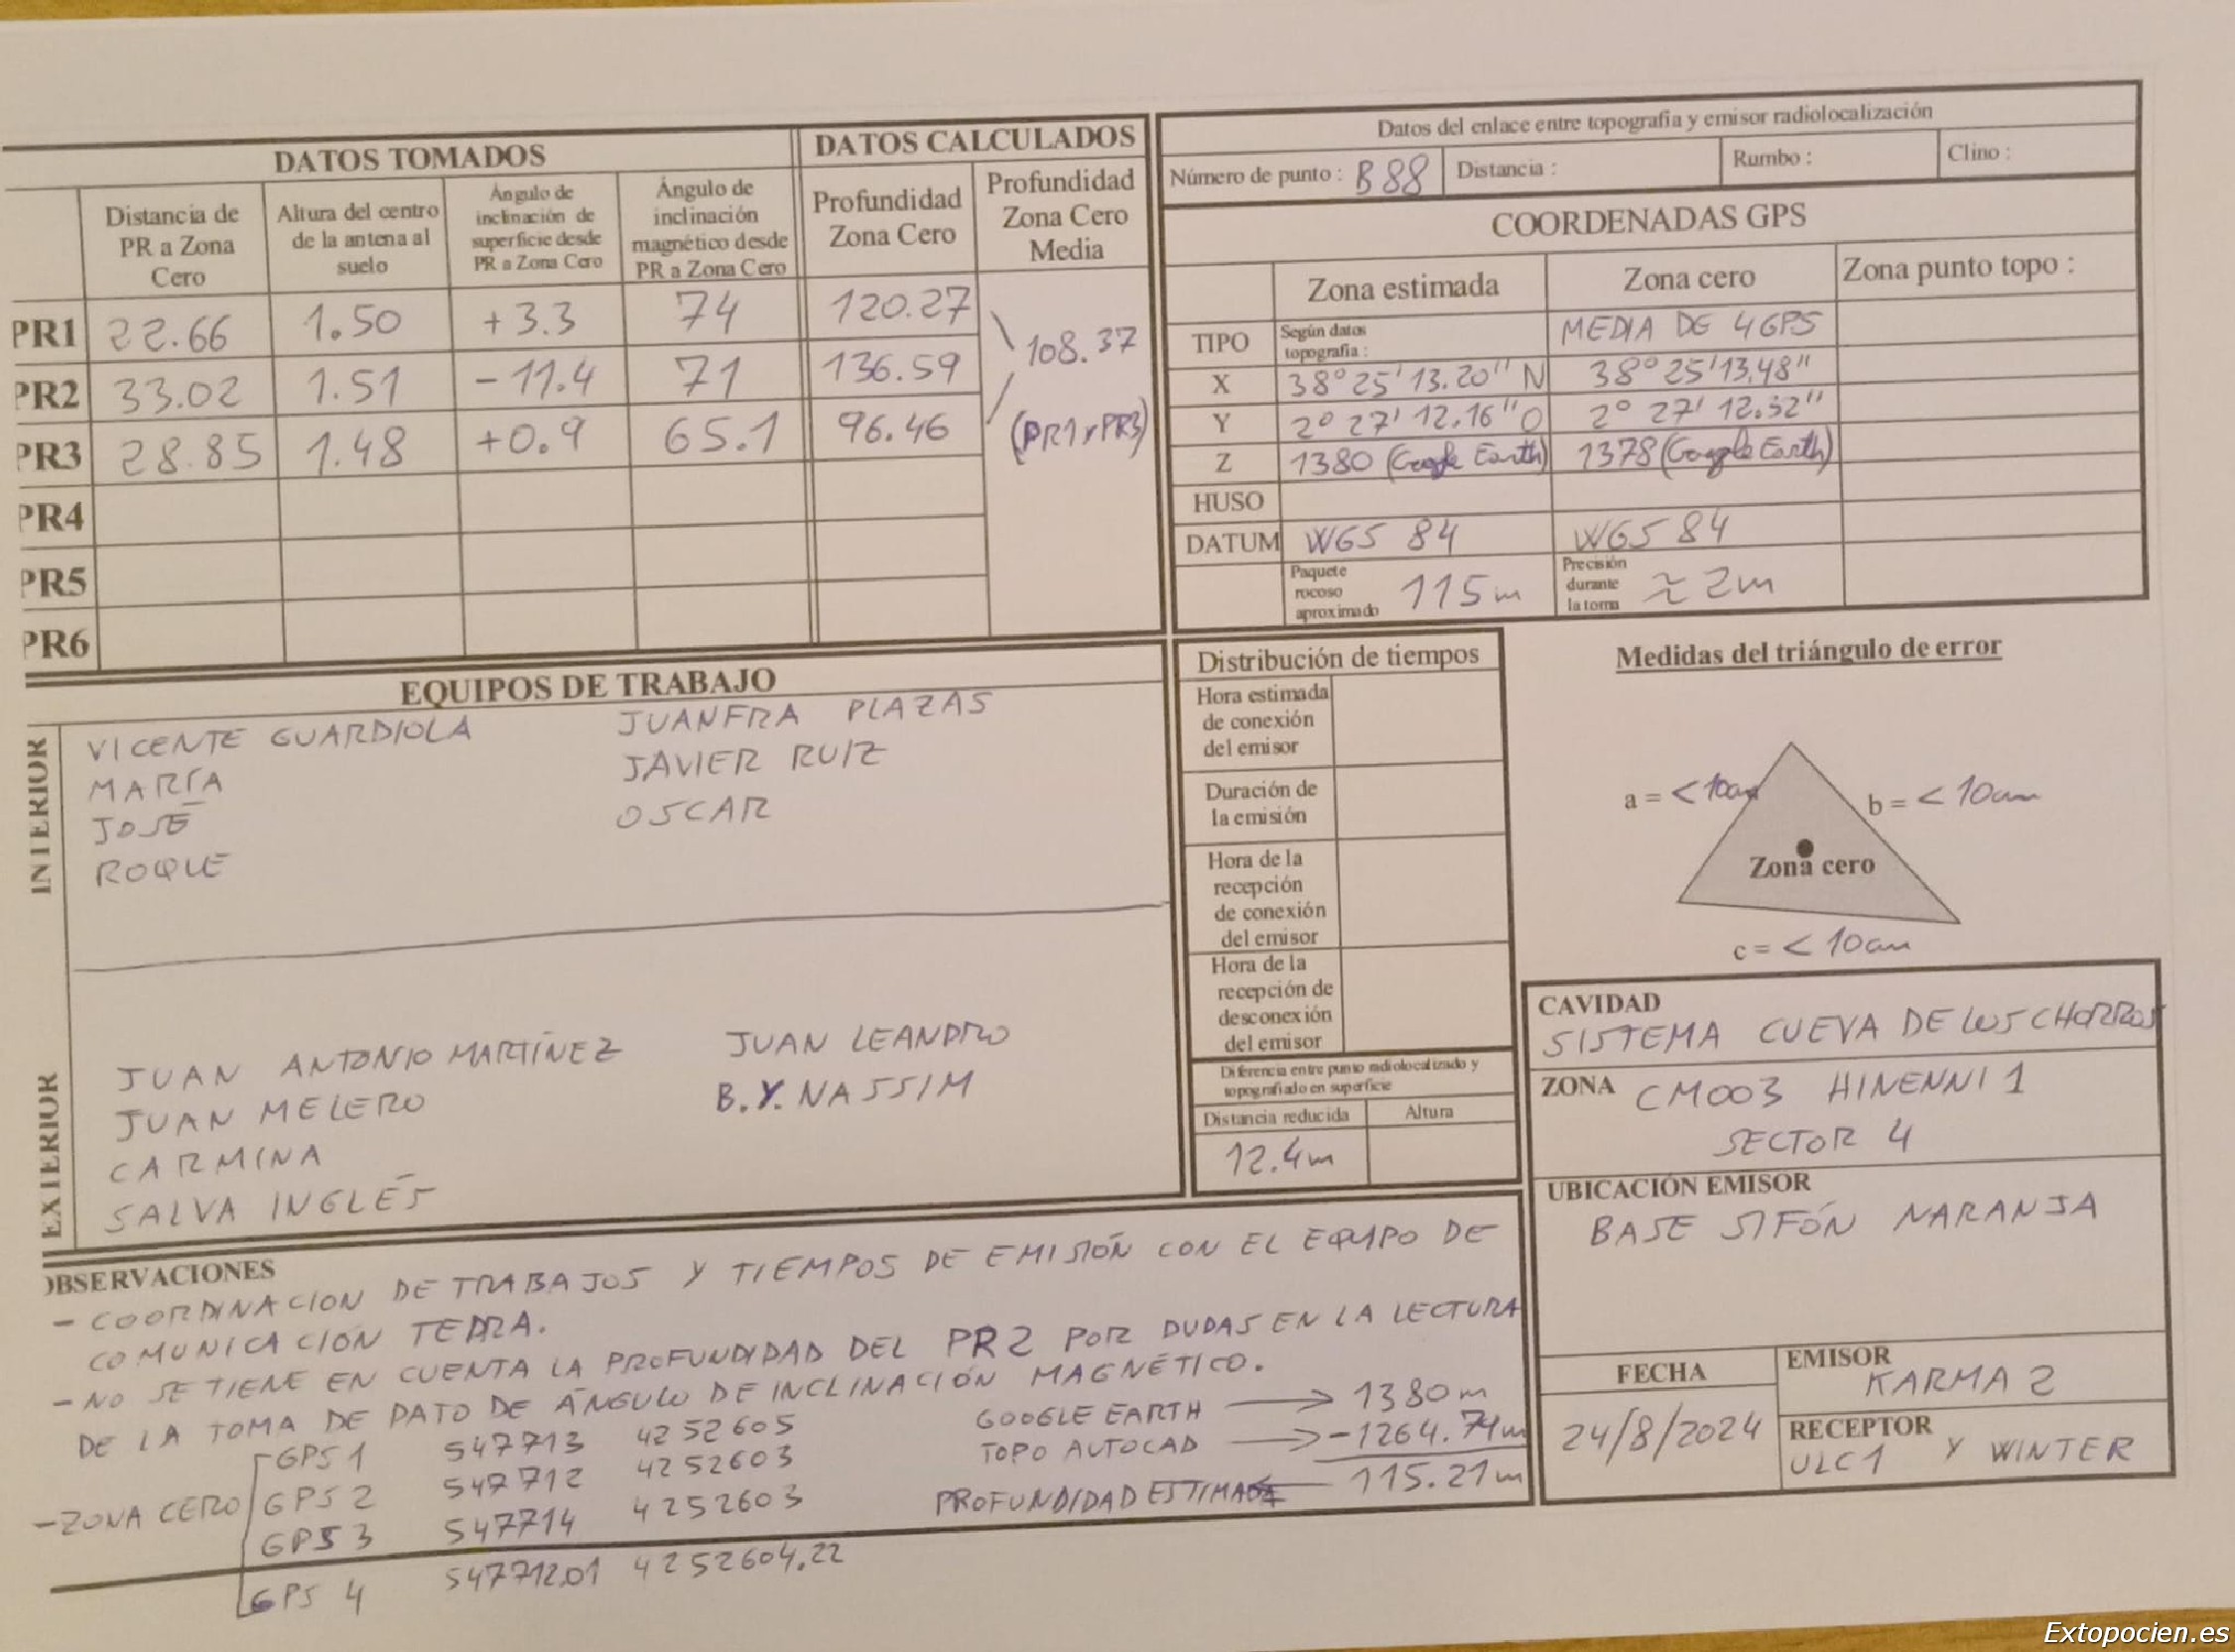 DATOS TOMADOS
DATOS CALCULADOS
Distancia de PR a Zona Cero
Altura del centro de la antena al suelo
Ángulo de inclinación de superficie desde PR a Zona Cero
Ángulo de inclinación magnético desde PR a Zona Cero
Profundidad Zona Cero
Profundidad Zona Cero Media
PR1 22.66 1.50 +3.3 74 120.27
PR2 33.02 1.51 -11.4 71 136.59
PR3 28.85 1.48 +0.9 65.1 96.46
108.37
(PR1 y PR3)
PR4
PR5
PR6
Datos del enlace entre topografía y emisor radiolocalización
Número de punto : B88 Distancia : Rumbo : Clino :
COORDENADAS GPS
Zona estimada Zona cero Zona punto topo :
TIPO Según datos topografía : MEDIA DE 4GPS
X 38° 25' 13.20'' N 38° 25' 13.48''
Y 2° 27' 12.16'' O 2° 27' 12.32''
Z 1380 (Google Earth) 1378 (Google Earth)
HUSO
DATUM WGS 84 WGS 84
Paquete rocoso aproximado 115m Precisión durante la toma ≈ 2m
EQUIPOS DE TRABAJO
INTERIOR
VICENTE GUARDIOLA JUANFRA PLAZAS
MARÍA JAVIER RUIZ
JOSÉ OSCAR
ROQUE
EXTERIOR
JUAN ANTONIO MARTÍNEZ JUAN LEANDRO
JUAN MELERO B.Y. NASSIM
CARMINA
SALVA INGLÉS
Distribución de tiempos
Hora estimada de conexión del emisor
Duración de la emisión
Hora de la recepción de conexión del emisor
Hora de la recepción de desconexión del emisor
Diferencia entre punto radiolocalizado y topografiado en superficie
Distancia reducida Altura
12.4m
Medidas del triángulo de error
a = < 10cm b = < 10cm
Zona cero
c = < 10cm
CAVIDAD
SISTEMA CUEVA DE LOS CHORROS
ZONA CM003 HINENNI 1
SECTOR 4
UBICACIÓN EMISOR
BASE SIFÓN NARANJA
FECHA
24/8/2024
EMISOR
KARMA 2
RECEPTOR
ULC1 Y WINTER
OBSERVACIONES
- COORDINACION DE TRABAJOS Y TIEMPOS DE EMISIÓN CON EL EQUIPO DE
COMUNICACIÓN TEDRA.
- NO SE TIENE EN CUENTA LA PROFUNDIDAD DEL PR2 POR DUDAS EN LA LECTURA
DE LA TOMA DE DATO DE ÁNGULO DE INCLINACIÓN MAGNÉTICO.
- ZONA CERO
GPS 1 547713 4252605
GPS 2 547712 4252603
GPS 3 547714 4252603
GPS 4 547712,01 4252604,22
GOOGLE EARTH → 1380m
TOPO AUTOCAD → -1264.79m
PROFUNDIDAD ESTIMADA 115.21m
Extopocien.es